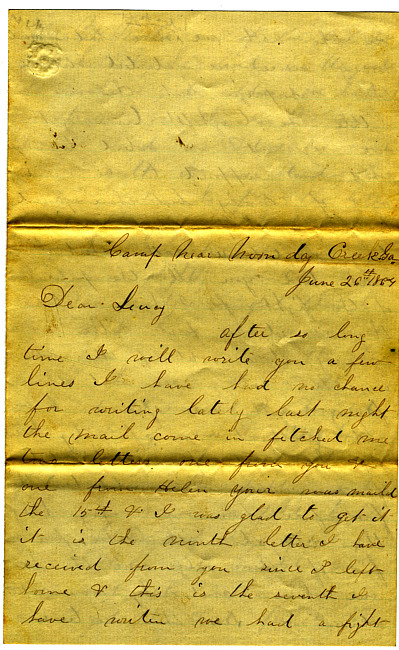 Camp Near Noon day Creek Ga
June 26th 1864
Dear Lucy
after so long
time I will write you a few
lines I have had no chance
for writing lately last night
the mail come in fetched me
two letters one from you &
one from Helen your was maild
the 15th & I was glad to get it
it is the ninth letter I have
received from you since I left
home & this is the seventh I
have writen we had a fight